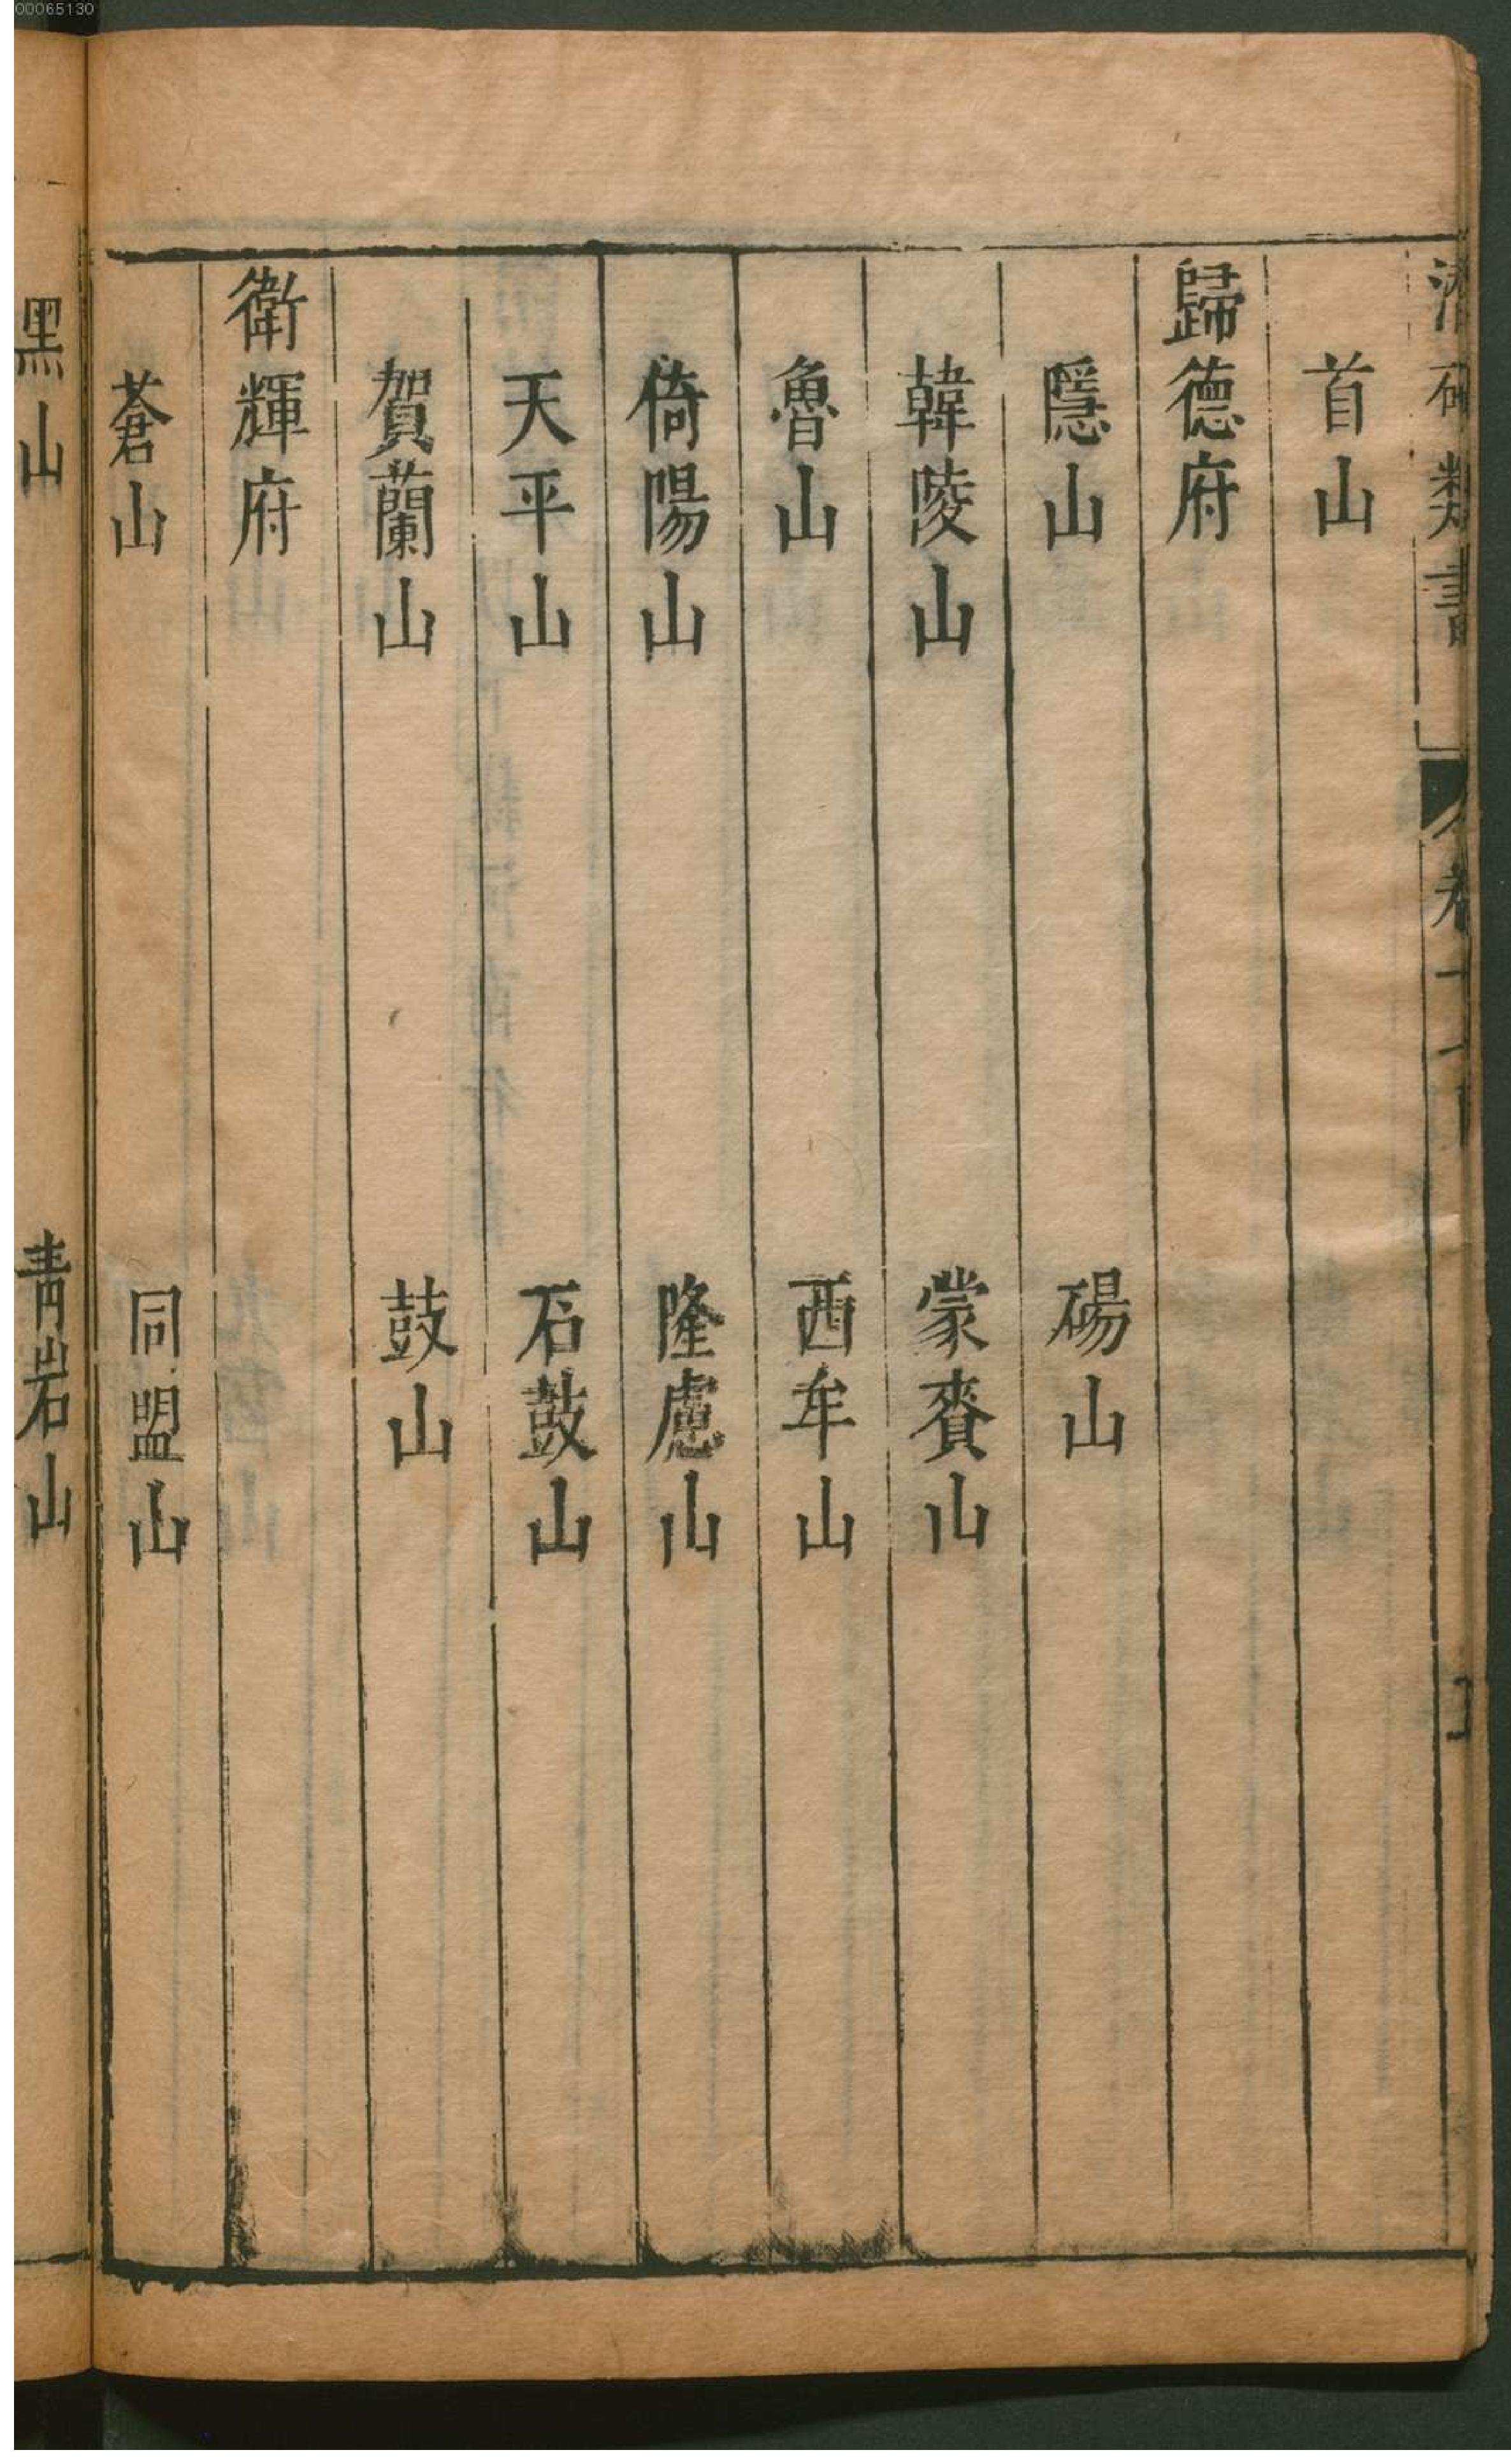 00065130
潛確類書
卷十七
首山
歸德府
隱山 碭山
韓陵山 蒙賚山
魯山 西牟山
倚陽山 隆慮山
天平山 石鼓山
賀蘭山 鼓山
衛輝府
蒼山 同盟山
黑山 青岩山